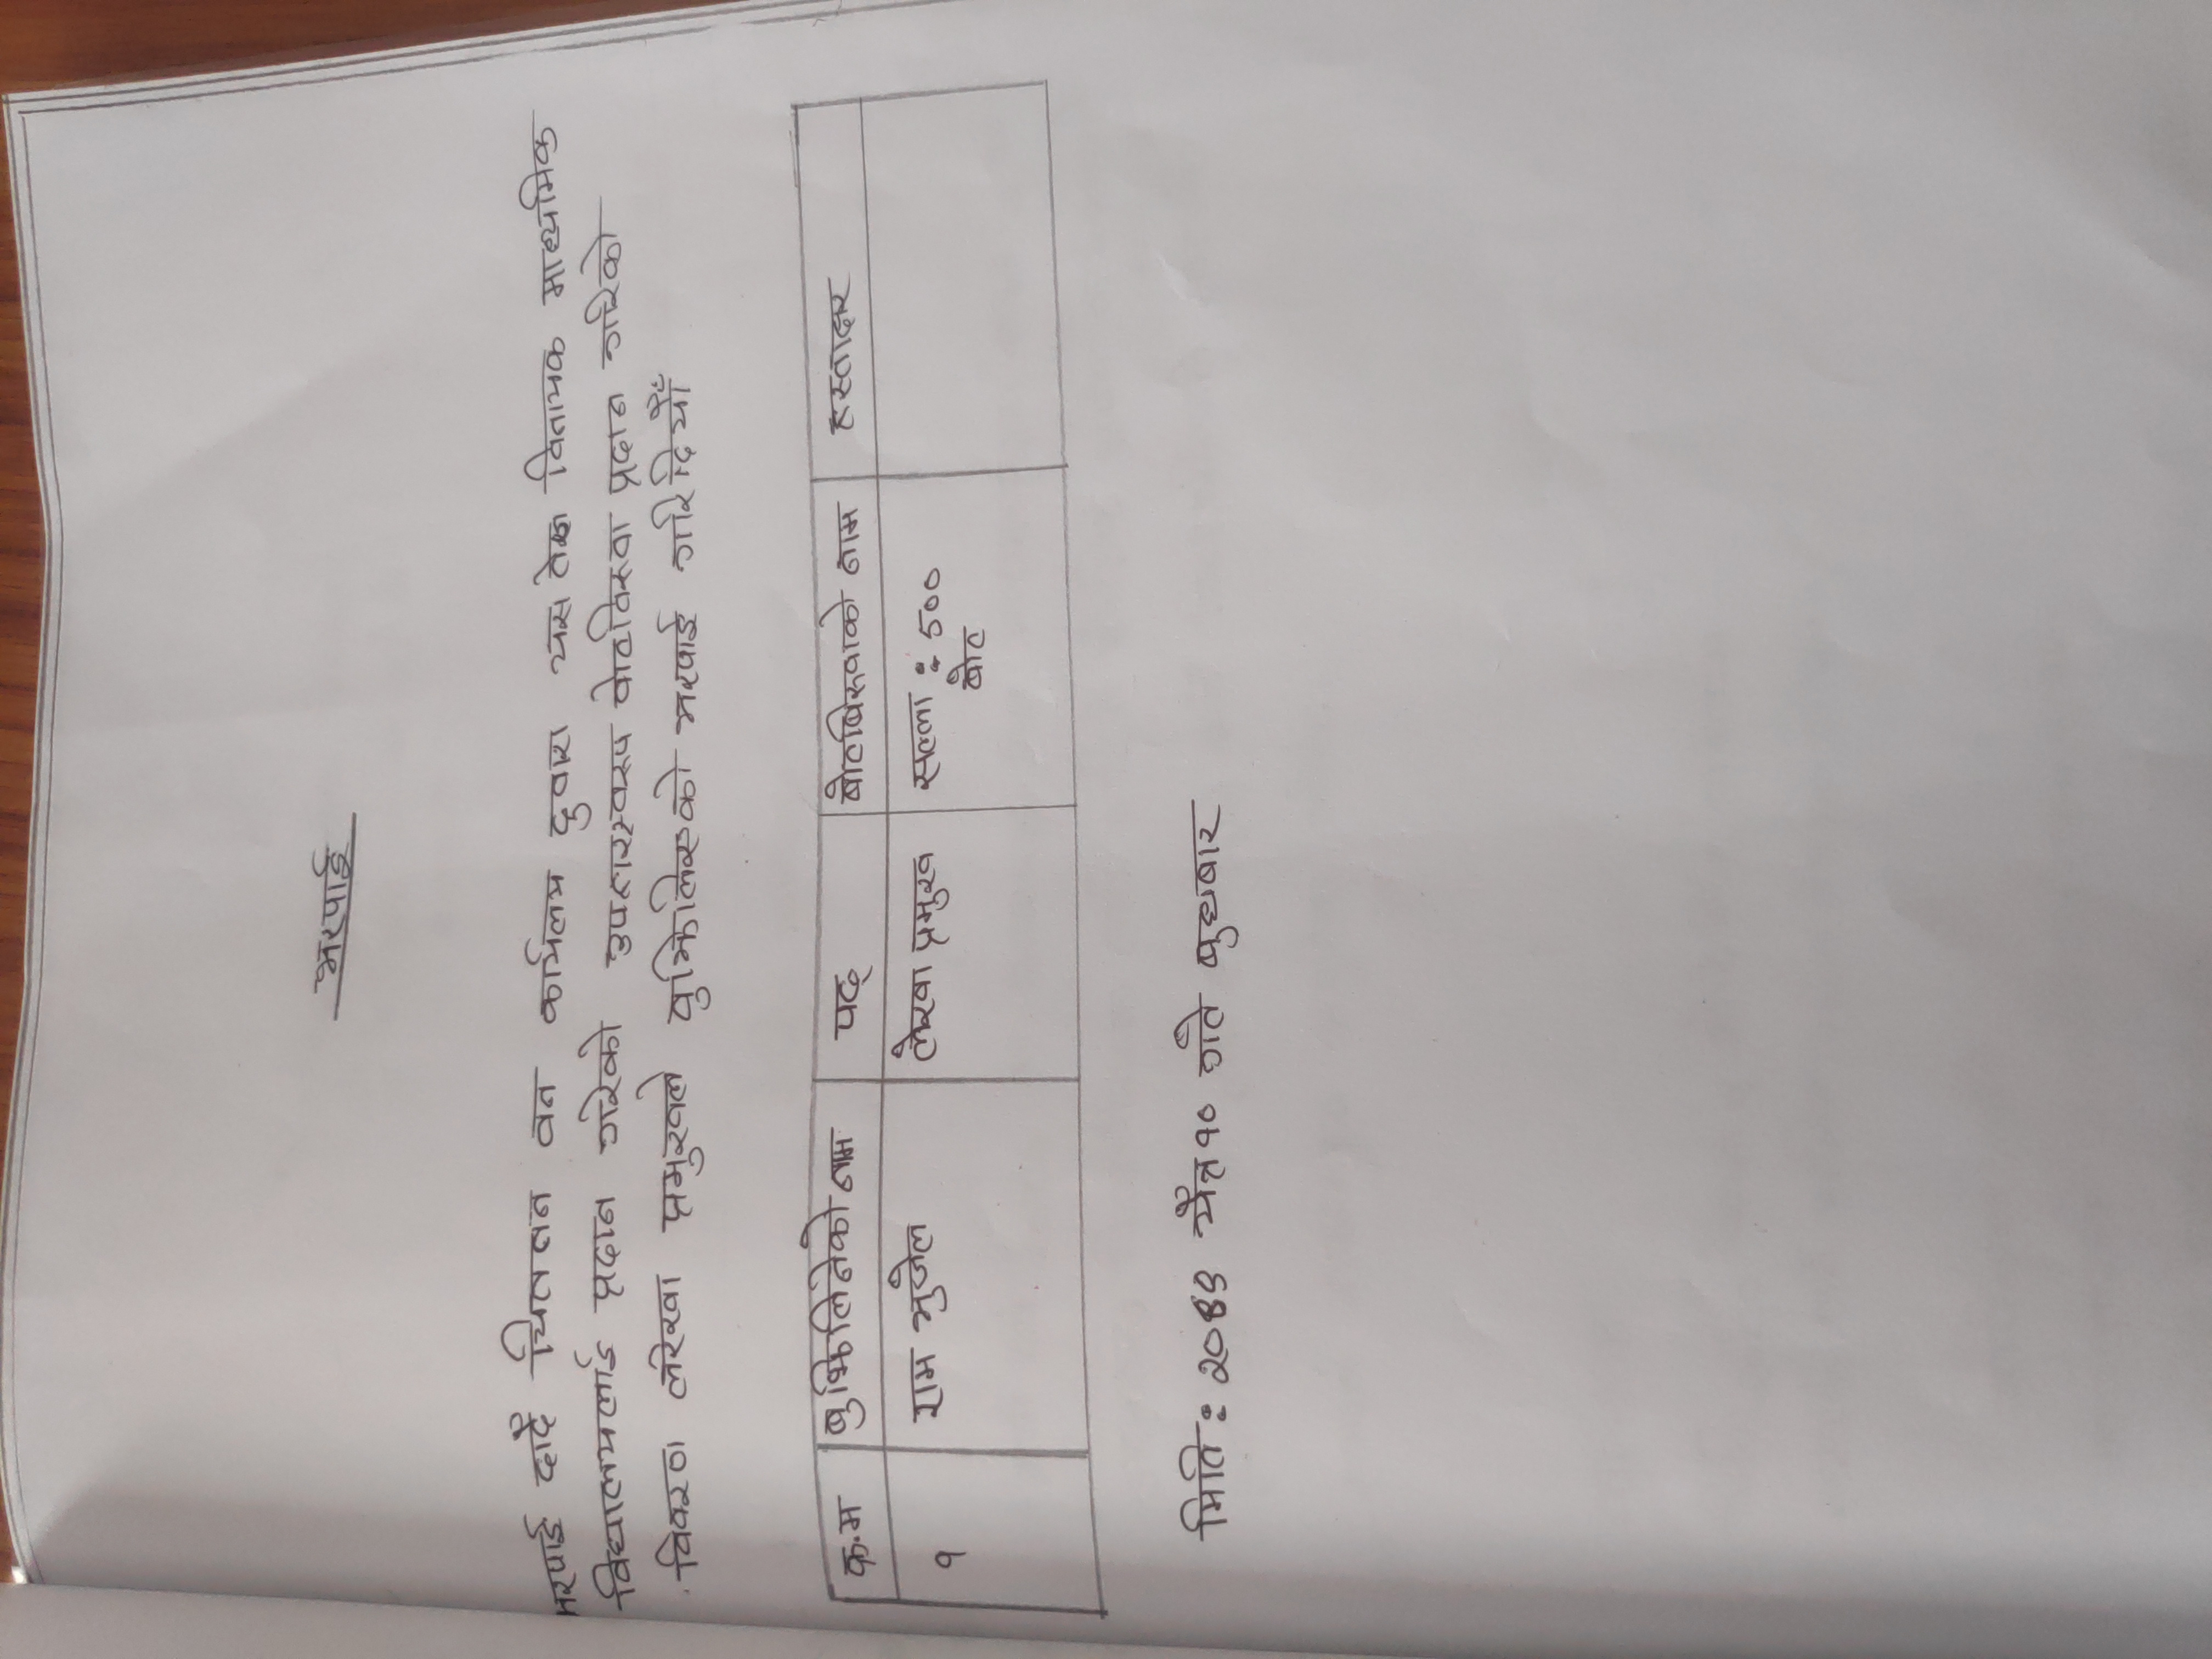 भरपाई
भरपाई दादै चितलन वन कार्यलय दुवारा यस विनायक माध्यमिक
विद्यालयलाई प्रदान गरेको उपहारस्वरूप वोटविरुवा प्रदान गरिको
विवरण लेखा प्रमुखले बुझिलिएको भरपाई गरिदियौँ
क्र.म बुझिलिनेको नाम पद् बोटबिरुवाको नाम हस्ताक्षर
१ राम भुजेल लेखा प्रमुख सल्ला : 500
बोट
मिति : चैत्र १० गते बुधबार